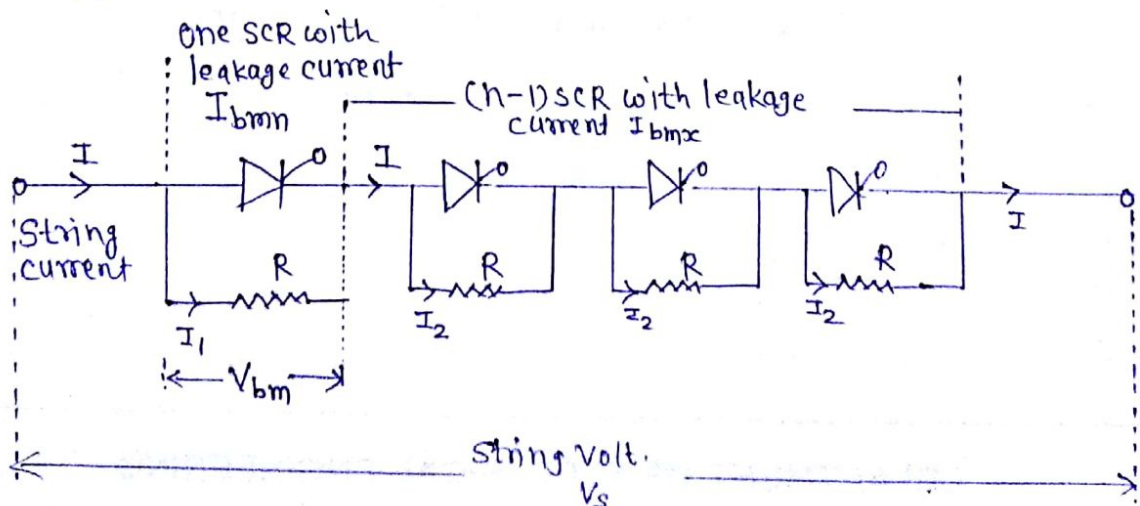 one SCR with
leakage current
Ibmn
(n-1) SCR with leakage
current Ibmx
I
I
I
String
current
R
R
R
R
I1
I2
I2
I2
Vbm
String Volt.
Vs